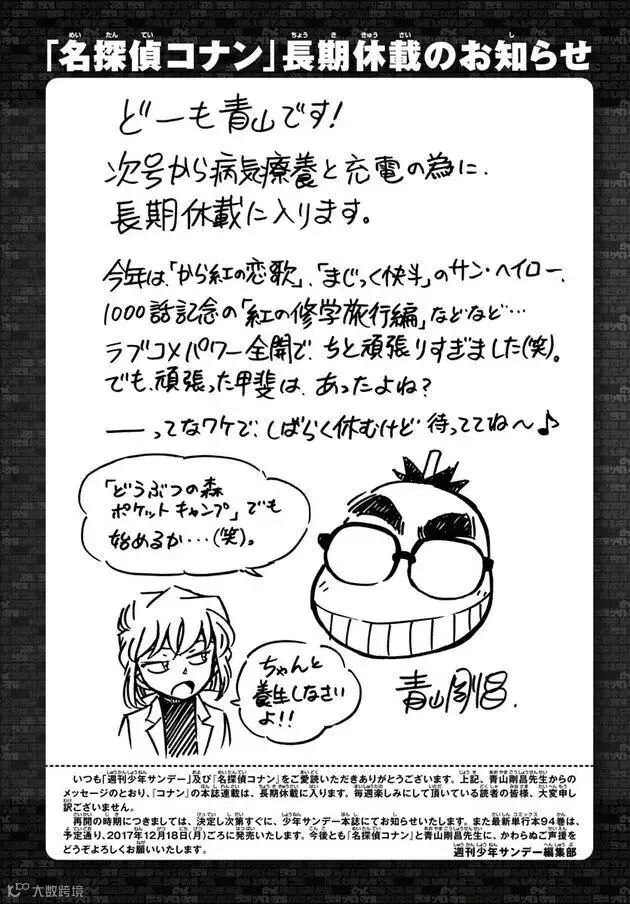 「名探偵コナン」長期休載のお知らせ
どーも青山です!
次号から病気療養と充電の為に、
長期休載に入ります。
今年は、「から紅の恋歌」、「まじっく快斗」のサン・ヘイロー、
1000話記念の「紅の修学旅行編」などなど…
ラブコメパワー全開で、ちと頑張りすぎました(笑)。
でも、頑張った甲斐は、あったよね?
──ってなワケで、しばらく休むけど 待っててね〜♪
「どうぶつの森
ポケットキャンプ」でも
始めるか…(笑)。
ちゃんと
養生しなさい
よ!!
青山剛昌.
いつも「週刊少年サンデー」及び『名探偵コナン』をご愛読いただきありがとうございます。上記、青山剛昌先生からの
メッセージのとおり、『コナン』の本誌連載は、長期休載に入ります。毎週楽しみにして頂いている読者の皆様、大変申し
訳ございません。
再開の時期につきましては、決定し次第すぐに、少年サンデー本誌にてお知らせいたします。また最新単行本94巻は、
予定通り、2017年12月18日(月)ごろに発売いたします。今後とも『名探偵コナン』と青山剛昌先生に、かわらぬご声援を
どうぞよろしくお願いいたします。
週刊少年サンデー編集部
大数跨境